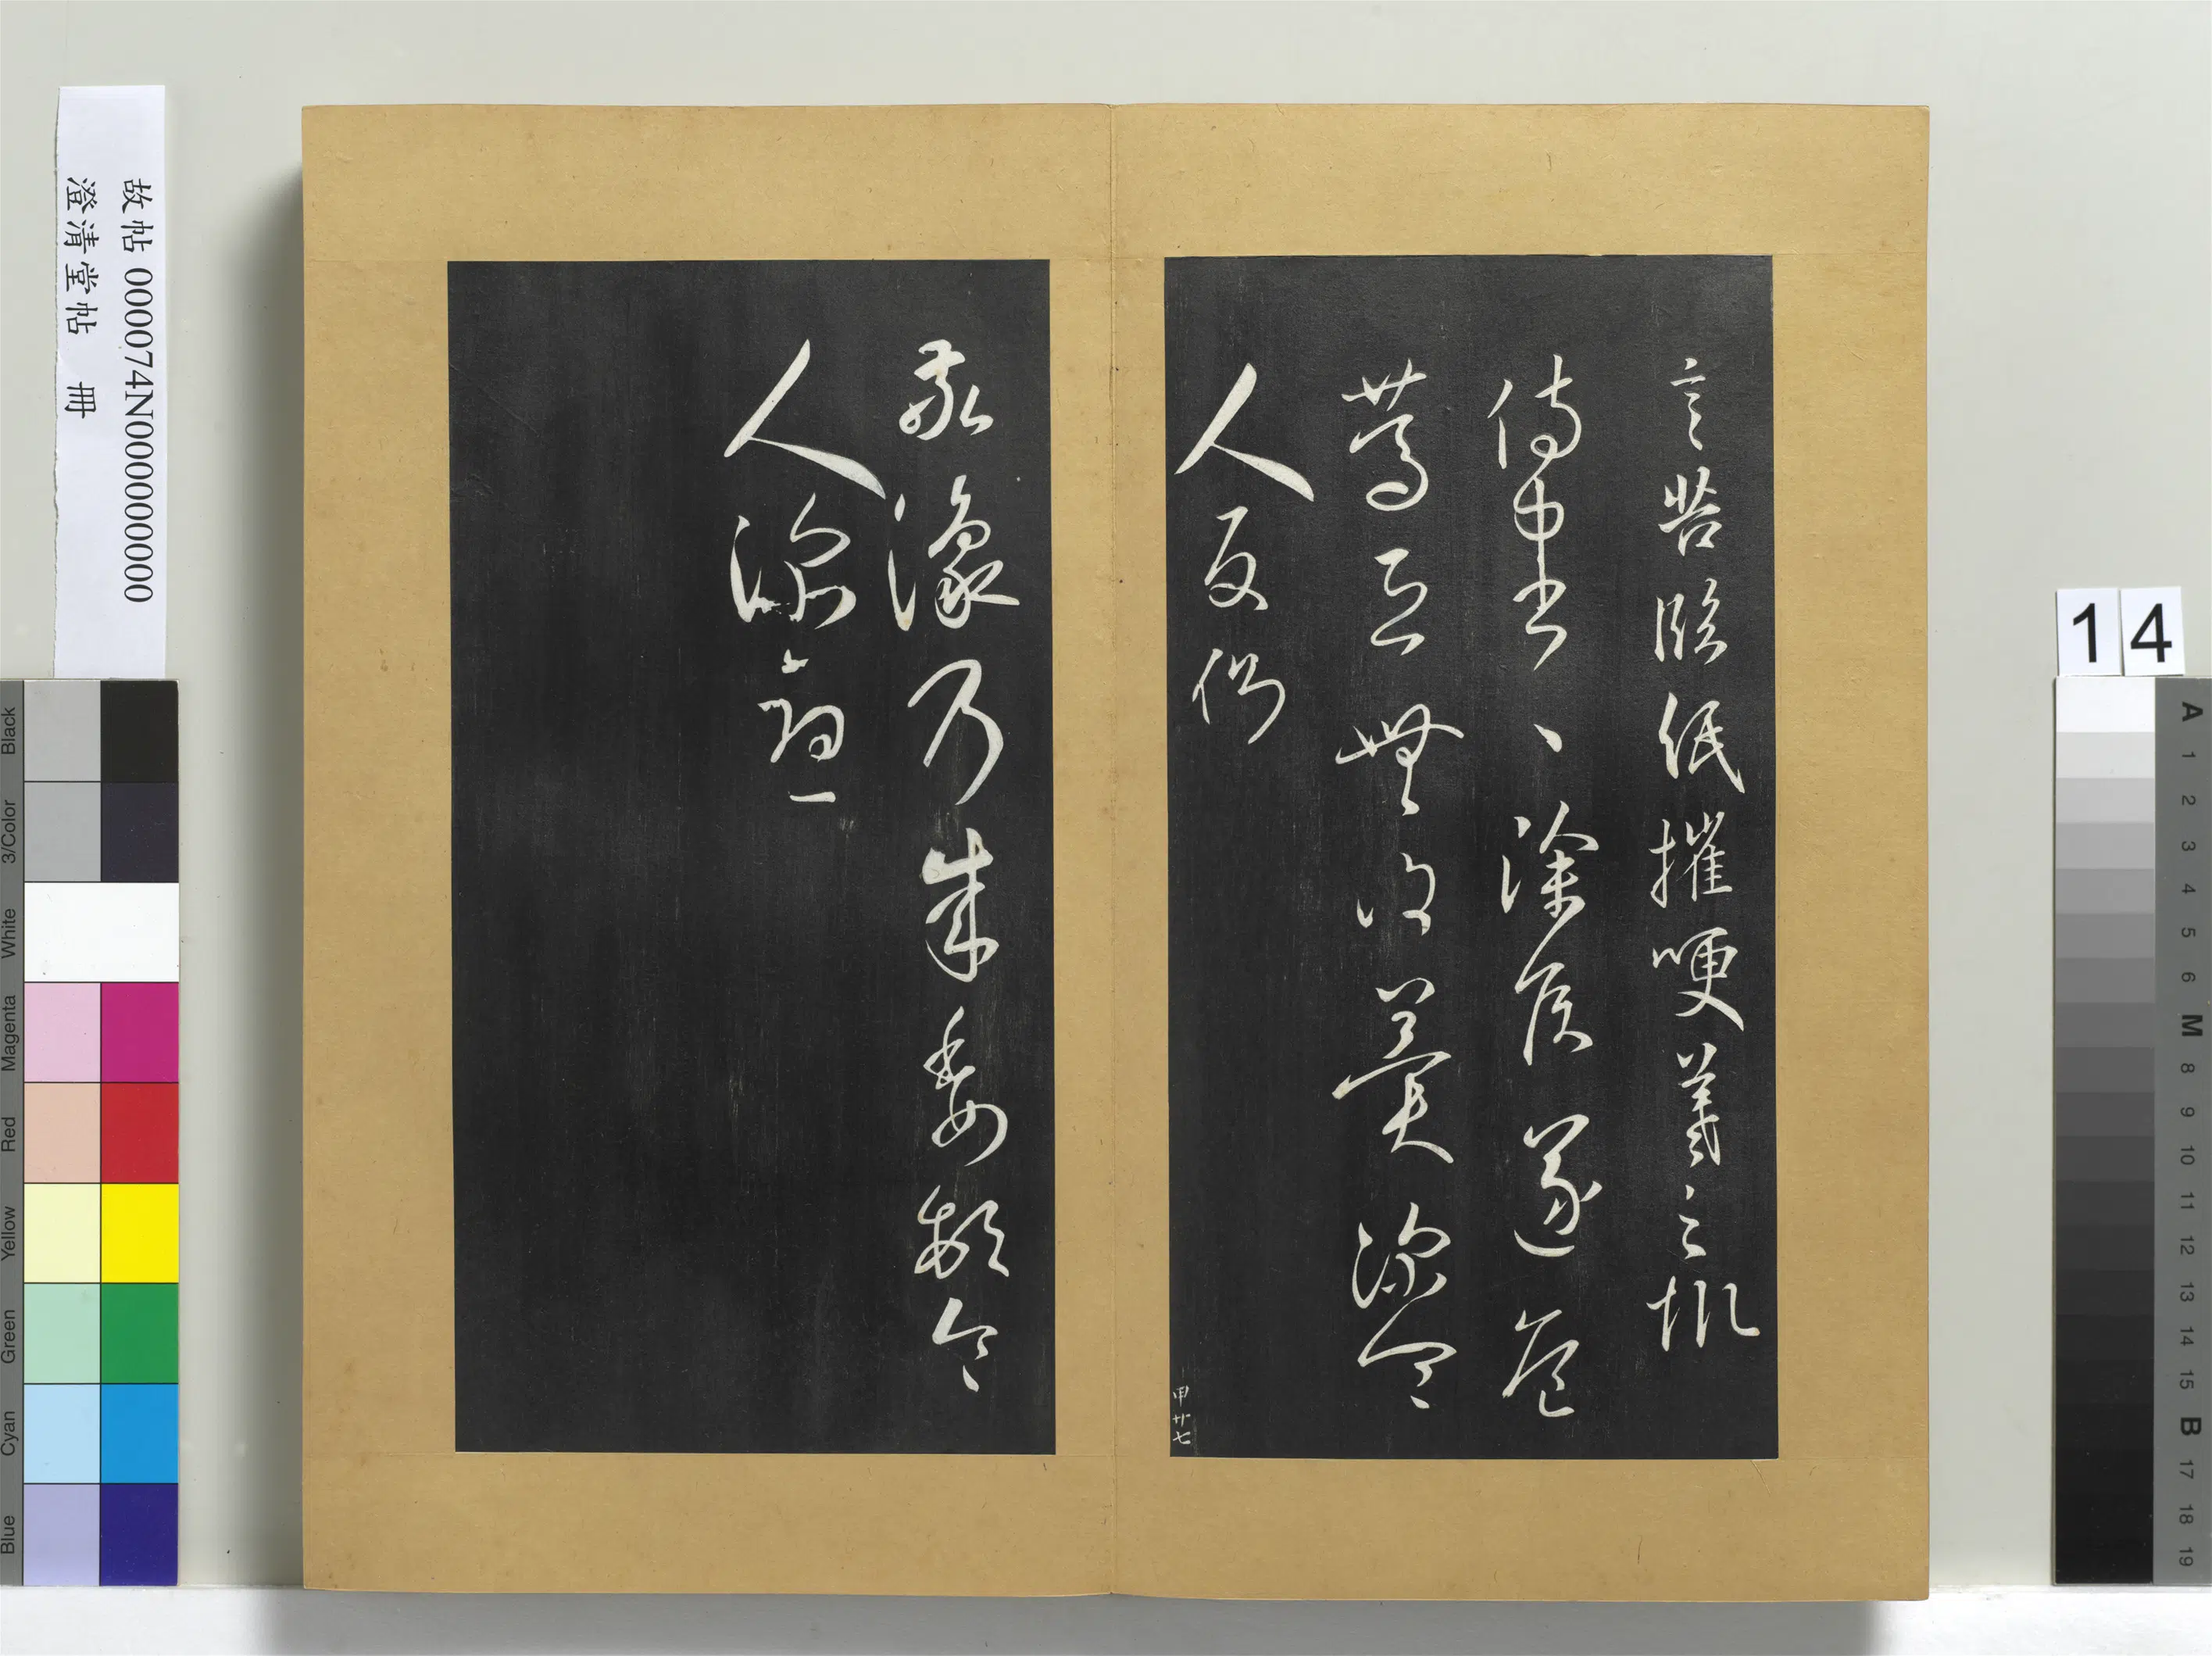 故帖 000074N000000000
澄清堂帖 冊
言苦臨紙摧哽羲之
中書 徐侯遂危
篤恐無復冀深令
人反側
甲廿七
敬豫乃成委頓令
人深憂
14
Black
3/Color
White
Magenta
Red
Yellow
Green
Cyan
Blue
A 1 2 3 4 5 6 M 8 9 10 11 12 13 14 15 B 17 18 19